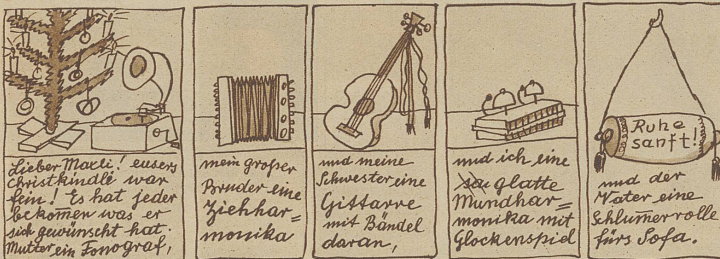 Lieber Maxli! eusers
Christkindle war
fein! Es hat jeder
bekomen was er
sich gewünscht hat.
Mutter ein Fonograf,
mein großer
Bruder eine
Ziehhar=
monika
und meine
Schwester eine
Gittarre
mit Bändel
daran,
und ich eine
glatte
Mundhar=
monika mit
Glockenspiel
Ruhe
sanft!
und der
Vater eine
Schlummerrolle
fürs Sofa.